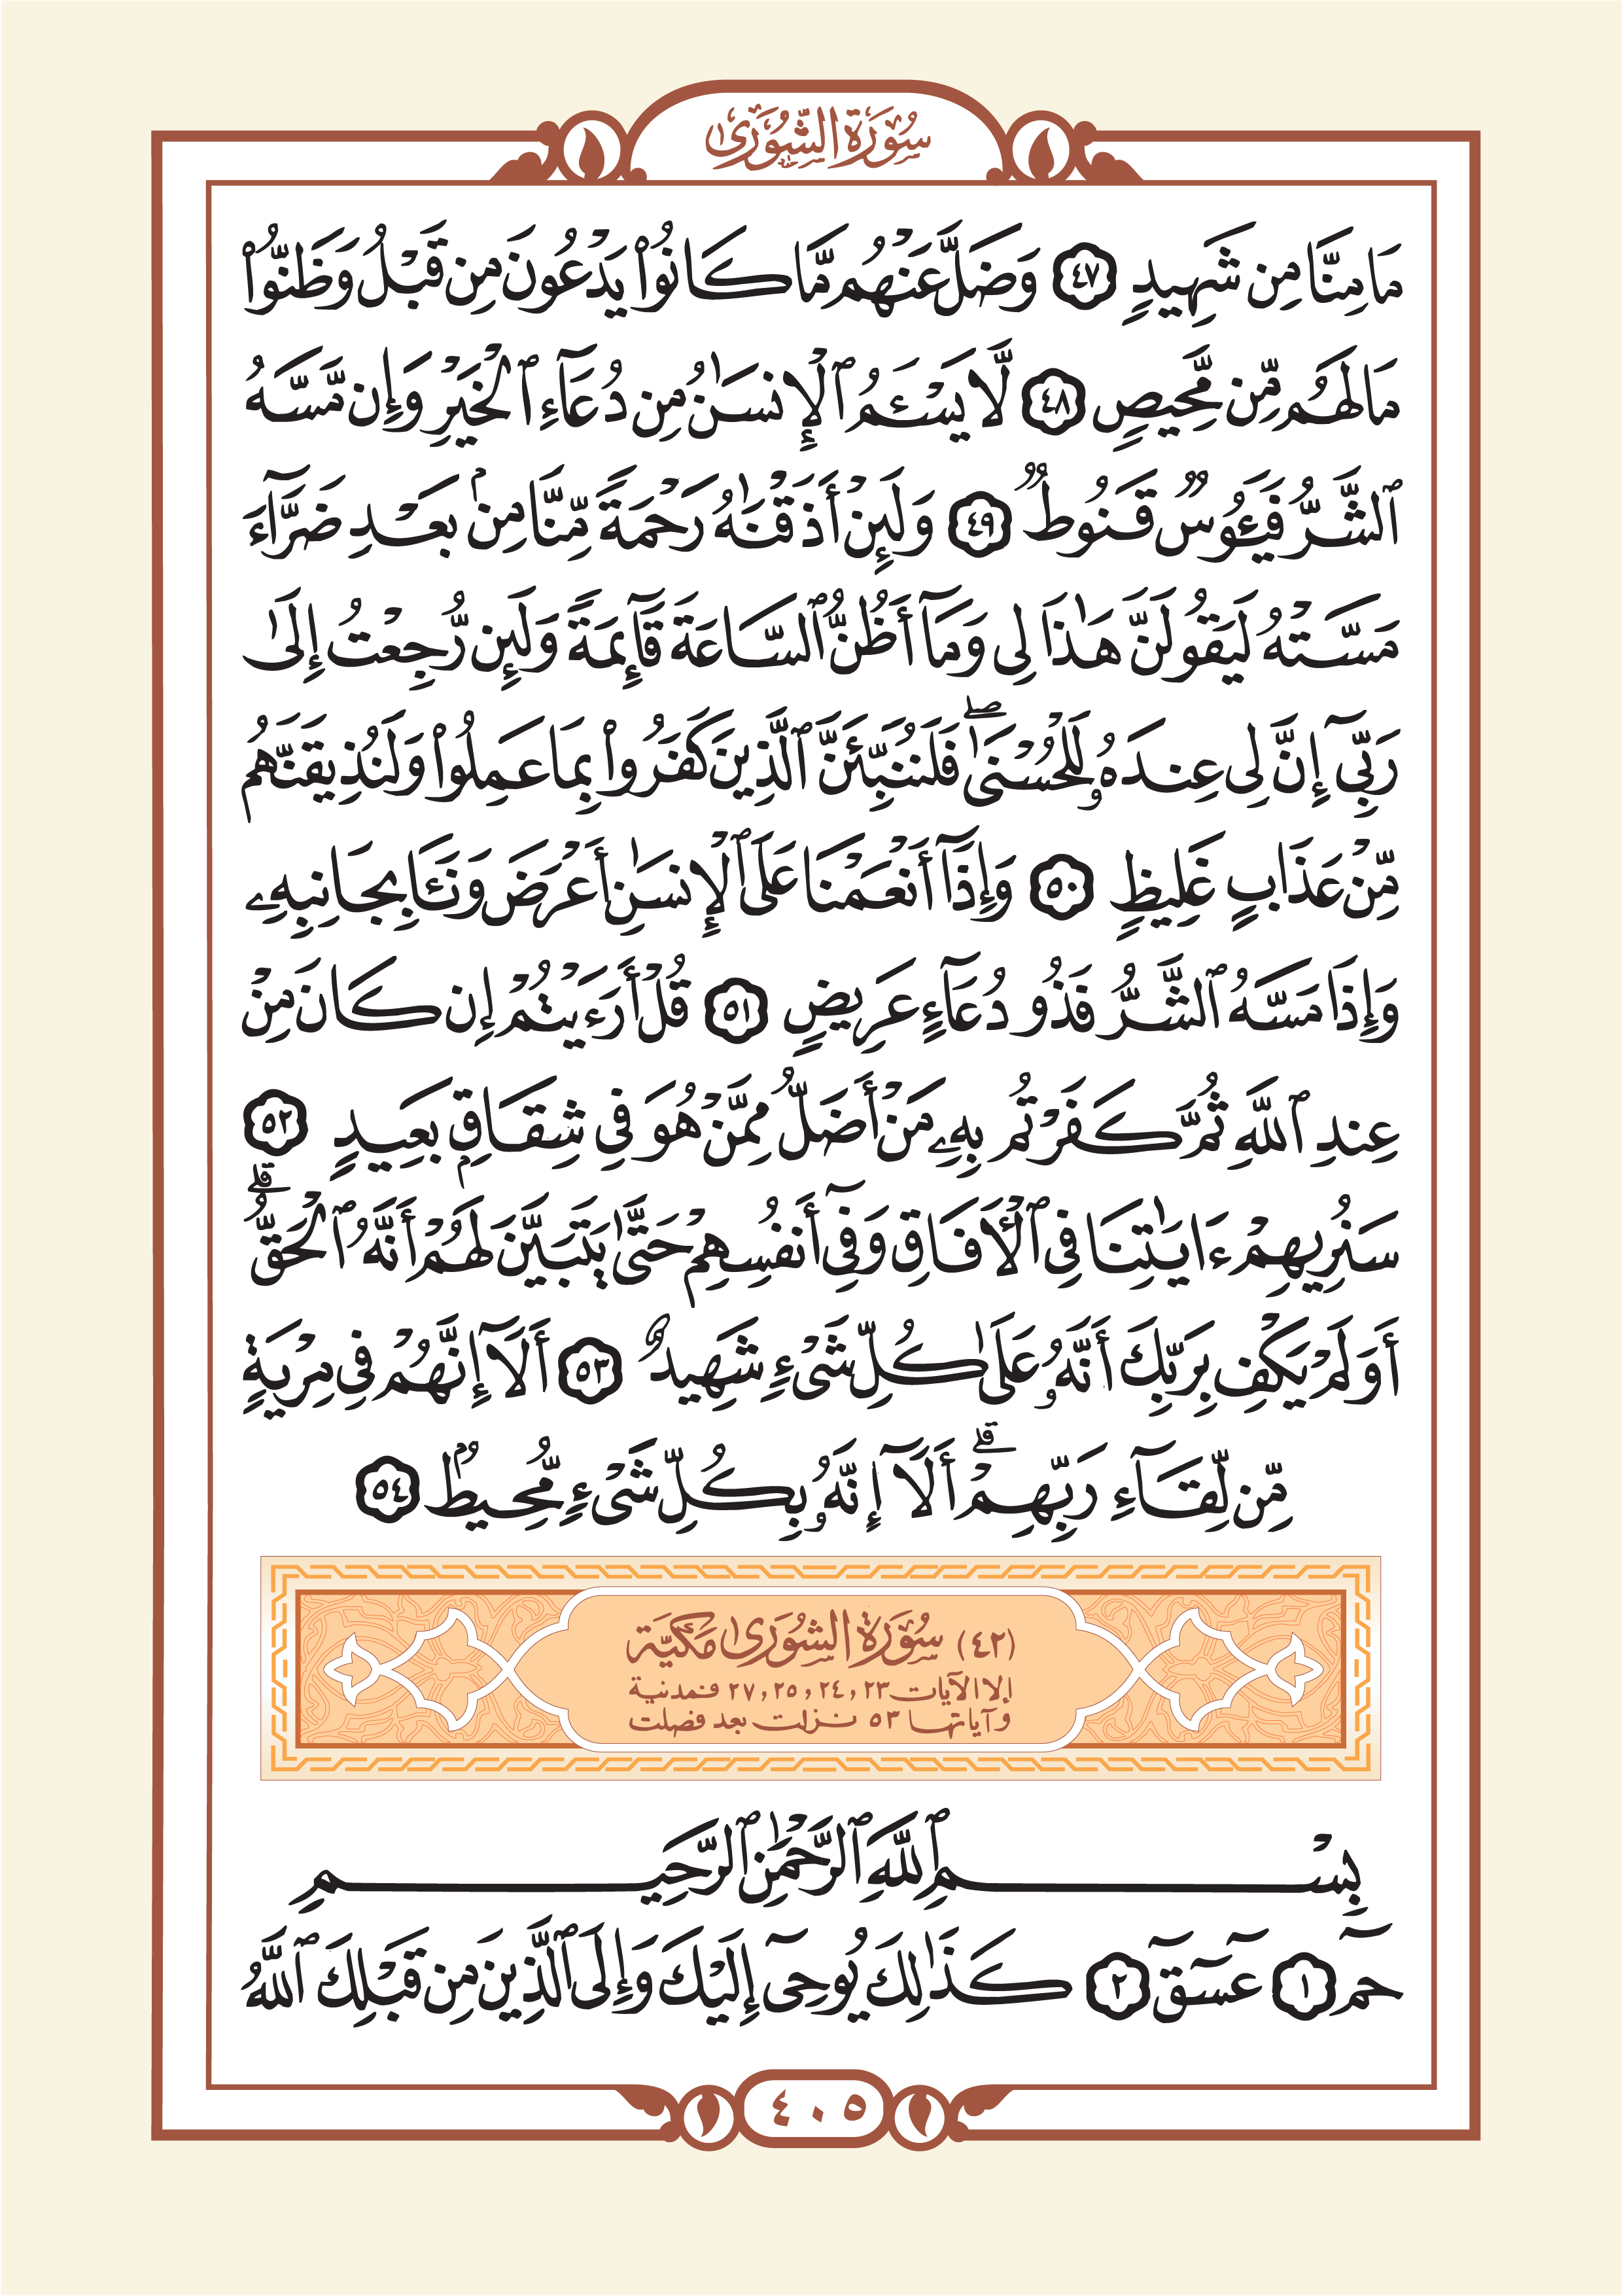 سُورَةُ الشُّورَىٰ
مَا مِنَّا مِن شَهِيدٍ ٤٧ وَضَلَّ عَنْهُم مَّا كَانُوا۟ يَدْعُونَ مِن قَبْلُ وَظَنُّوا۟
مَا لَهُم مِّن مَّحِيصٍ ٤٨ لَّا يَسْـَٔمُ ٱلْإِنسَـٰنُ مِن دُعَآءِ ٱلْخَيْرِ وَإِن مَّسَّهُ
ٱلشَّرُّ فَيَـُٔوسٌ قَنُوطٌ ٤٩ وَلَئِنْ أَذَقْنَـٰهُ رَحْمَةً مِّنَّا مِنۢ بَعْدِ ضَرَّآءَ
مَسَّتْهُ لَيَقُولَنَّ هَـٰذَا لِى وَمَآ أَظُنُّ ٱلسَّاعَةَ قَآئِمَةً وَلَئِن رُّجِعْتُ إِلَىٰ
رَبِّىٓ إِنَّ لِى عِندَهُۥ لَلْحُسْنَىٰ ۖ فَلَنُنَبِّئَنَّ ٱلَّذِينَ كَفَرُوا۟ بِمَا عَمِلُوا۟ وَلَنُذِيقَنَّهُم
مِّنْ عَذَابٍ غَلِيظٍ ٥٠ وَإِذَآ أَنْعَمْنَا عَلَى ٱلْإِنسَـٰنِ أَعْرَضَ وَنَـَٔا بِجَانِبِهِۦ
وَإِذَا مَسَّهُ ٱلشَّرُّ فَذُو دُعَآءٍ عَرِيضٍ ٥١ قُلْ أَرَءَيْتُمْ إِن كَانَ مِنْ
عِندِ ٱللَّهِ ثُمَّ كَفَرْتُم بِهِۦ مَنْ أَضَلُّ مِمَّنْ هُوَ فِى شِقَاقٍۭ بَعِيدٍ ٥٢
سَنُرِيهِمْ ءَايَـٰتِنَا فِى ٱلْـَٔافَاقِ وَفِىٓ أَنفُسِهِمْ حَتَّىٰ يَتَبَيَّنَ لَهُمْ أَنَّهُ ٱلْحَقُّ ۗ
أَوَلَمْ يَكْفِ بِرَبِّكَ أَنَّهُۥ عَلَىٰ كُلِّ شَىْءٍ شَهِيدٌ ٥٣ أَلَآ إِنَّهُمْ فِى مِرْيَةٍ
مِّن لِّقَآءِ رَبِّهِمْ ۗ أَلَآ إِنَّهُۥ بِكُلِّ شَىْءٍ مُّحِيطٌۢ ٥٤
(٤٢) سُورَةُ الشُّورَىٰ مَكِّيَّة
إلا الآيات ٢٣, ٢٤, ٢٥, ٢٧ فمدنية
وآياتها ٥٣ نزلت بعد فصلت
بِسْمِ ٱللَّهِ ٱلرَّحْمَـٰنِ ٱلرَّحِيمِ
حمٓ ١ عٓسٓقٓ ٢ كَذَٰلِكَ يُوحِىٓ إِلَيْكَ وَإِلَى ٱلَّذِينَ مِن قَبْلِكَ ٱللَّهُ
٤٠٥